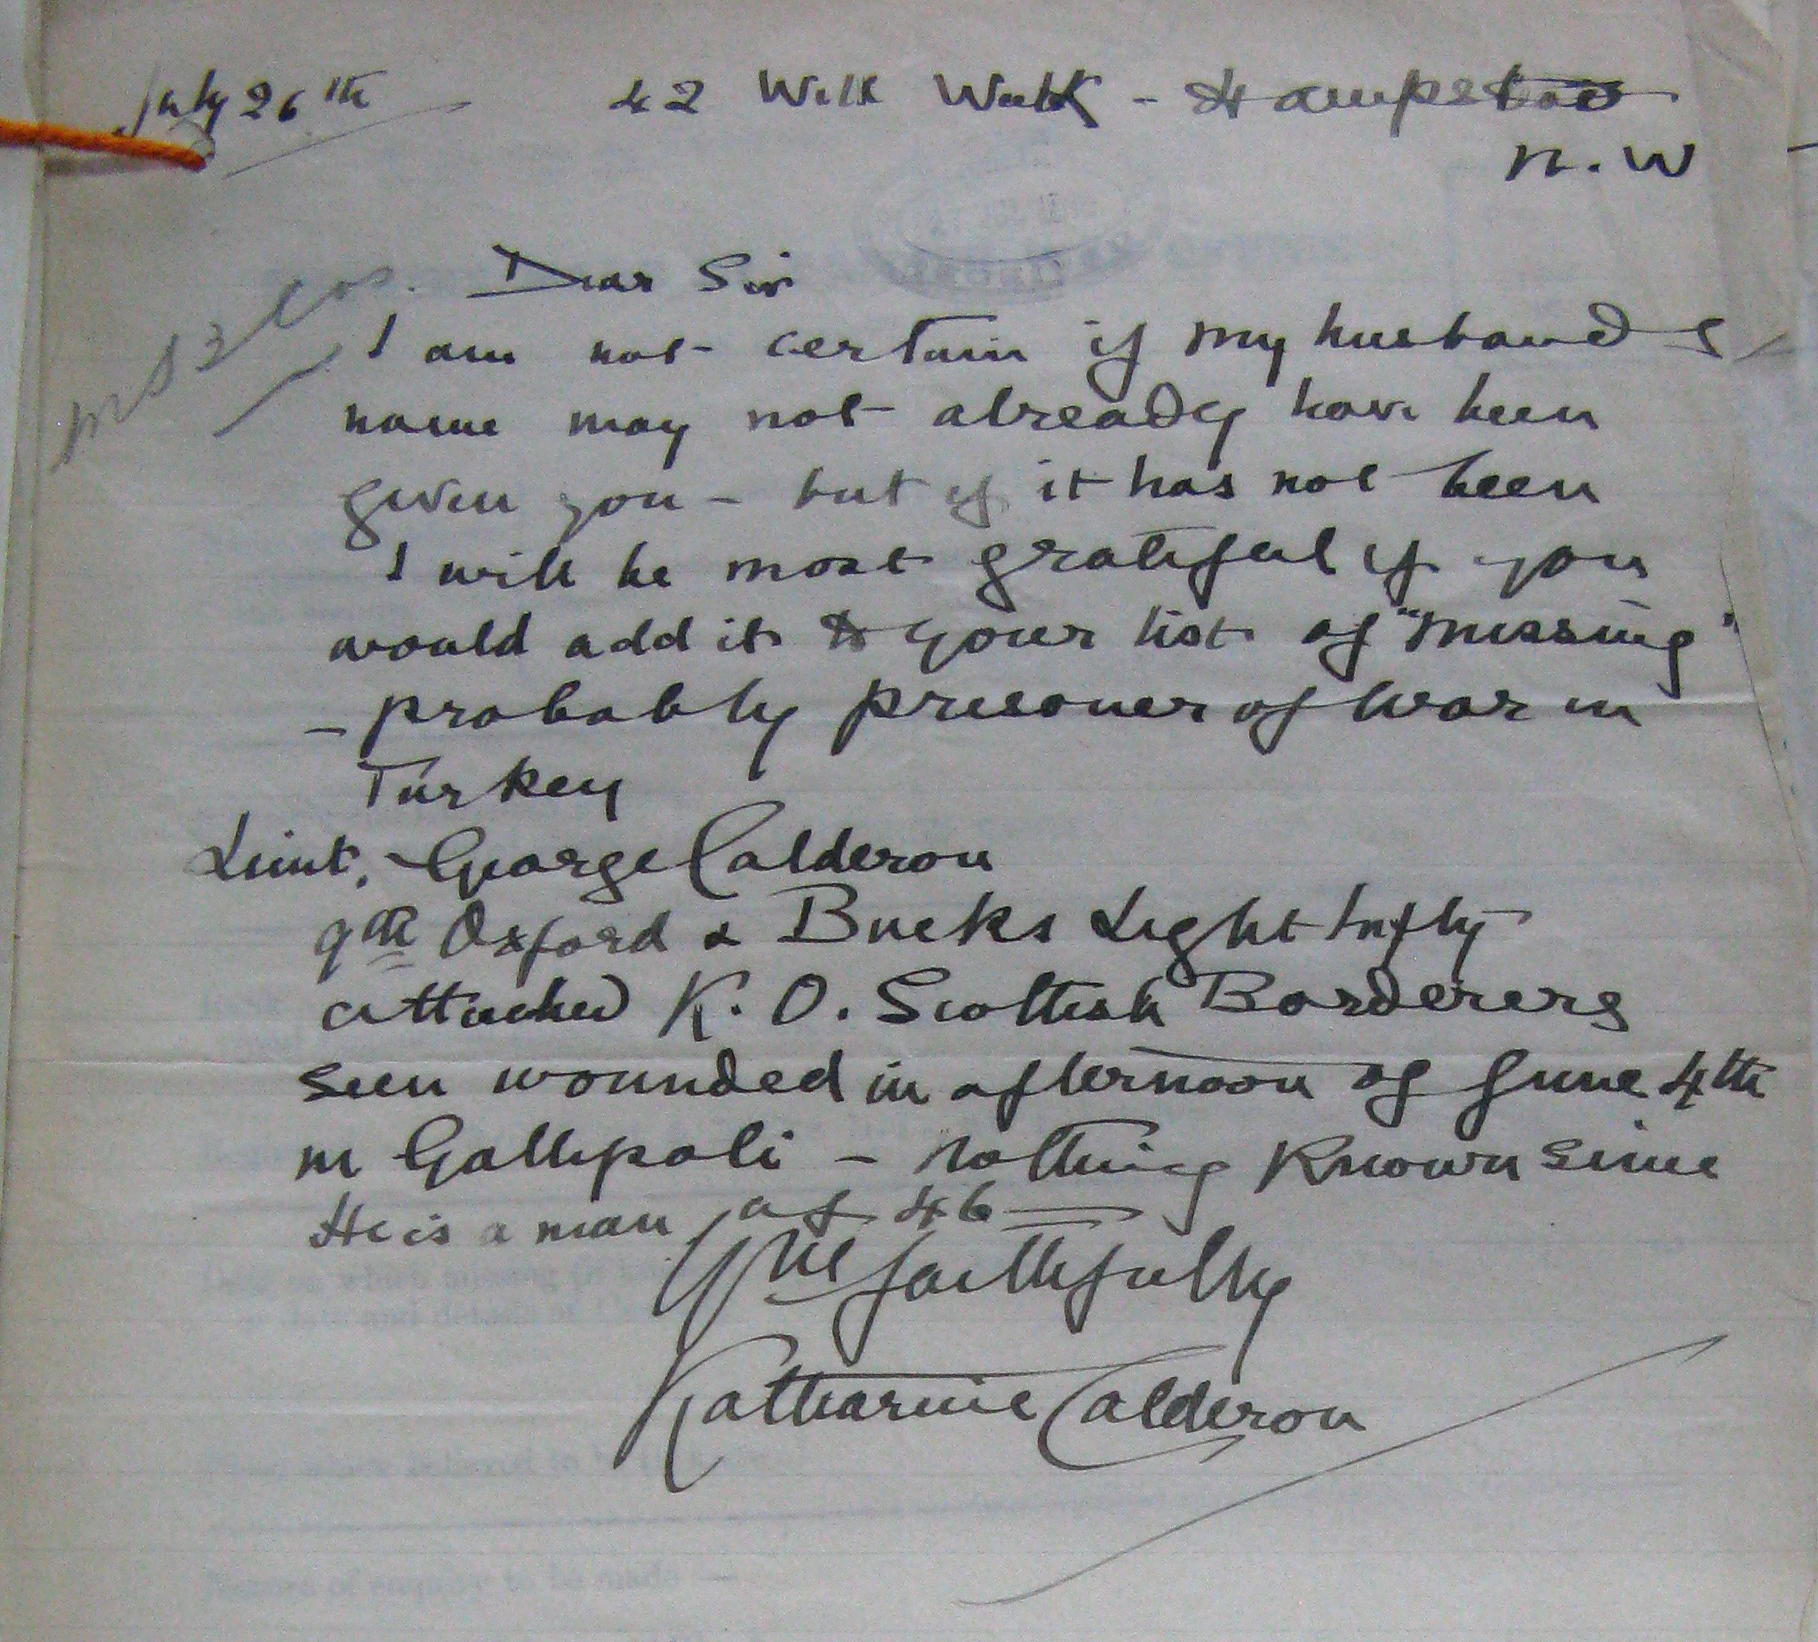 July 26th 42 Well Walk - Hampstead
N.W
Dear Sir
I am not certain if my husbands
name may not already have been
given you - but if it has not been
I will be most grateful if you
would add it to your list of "missing"
- probably prisoner of war in
Turkey
Lieut. George Calderon
9th Oxford & Bucks Light Infty
attached K. O. Scottish Borderers
seen wounded in afternoon of June 4th
in Gallipoli - nothing known since
He is a man of 46
Yrs faithfully
Katharine Calderon